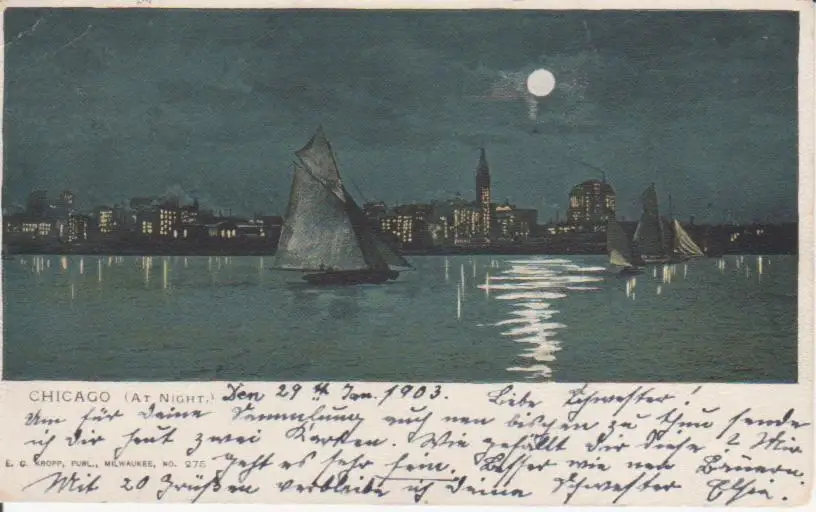 CHICAGO (AT NIGHT.) Den 29th Jan. 1903. Liebe Schwester!
Um für Deine Sammlung auch nen bischen zu thun sende
ich dir heut zwei Karten. Wie gefällt dir diese? Mir
E. C. KROPP, PUBL., MILWAUKEE, NO. 275 geht es sehr fein. Besser wie nen Bauern.
Mit 20 Grüßen verbleibe ich Deine Schwester Elsie.